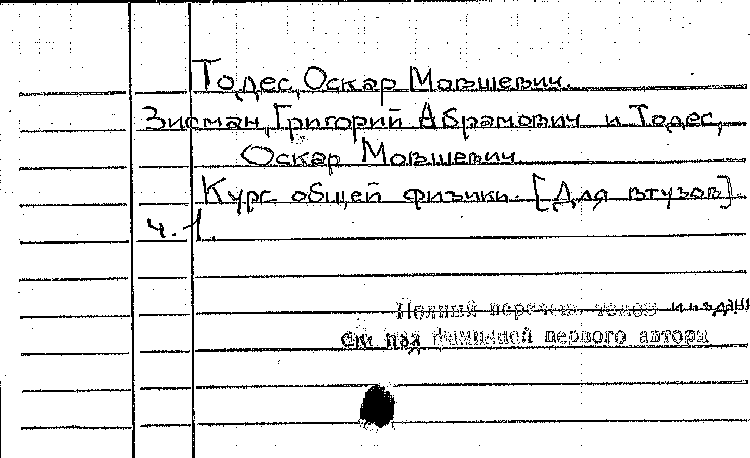 Тодес, Оскар Мовшевич.
Зисман, Григорий Абрамович и Тодес,
Оскар Мовшевич
Курс общей физики. [Для втузов].
ч. 1.
Полный перечень томов и издан
см под фамилией первого автора